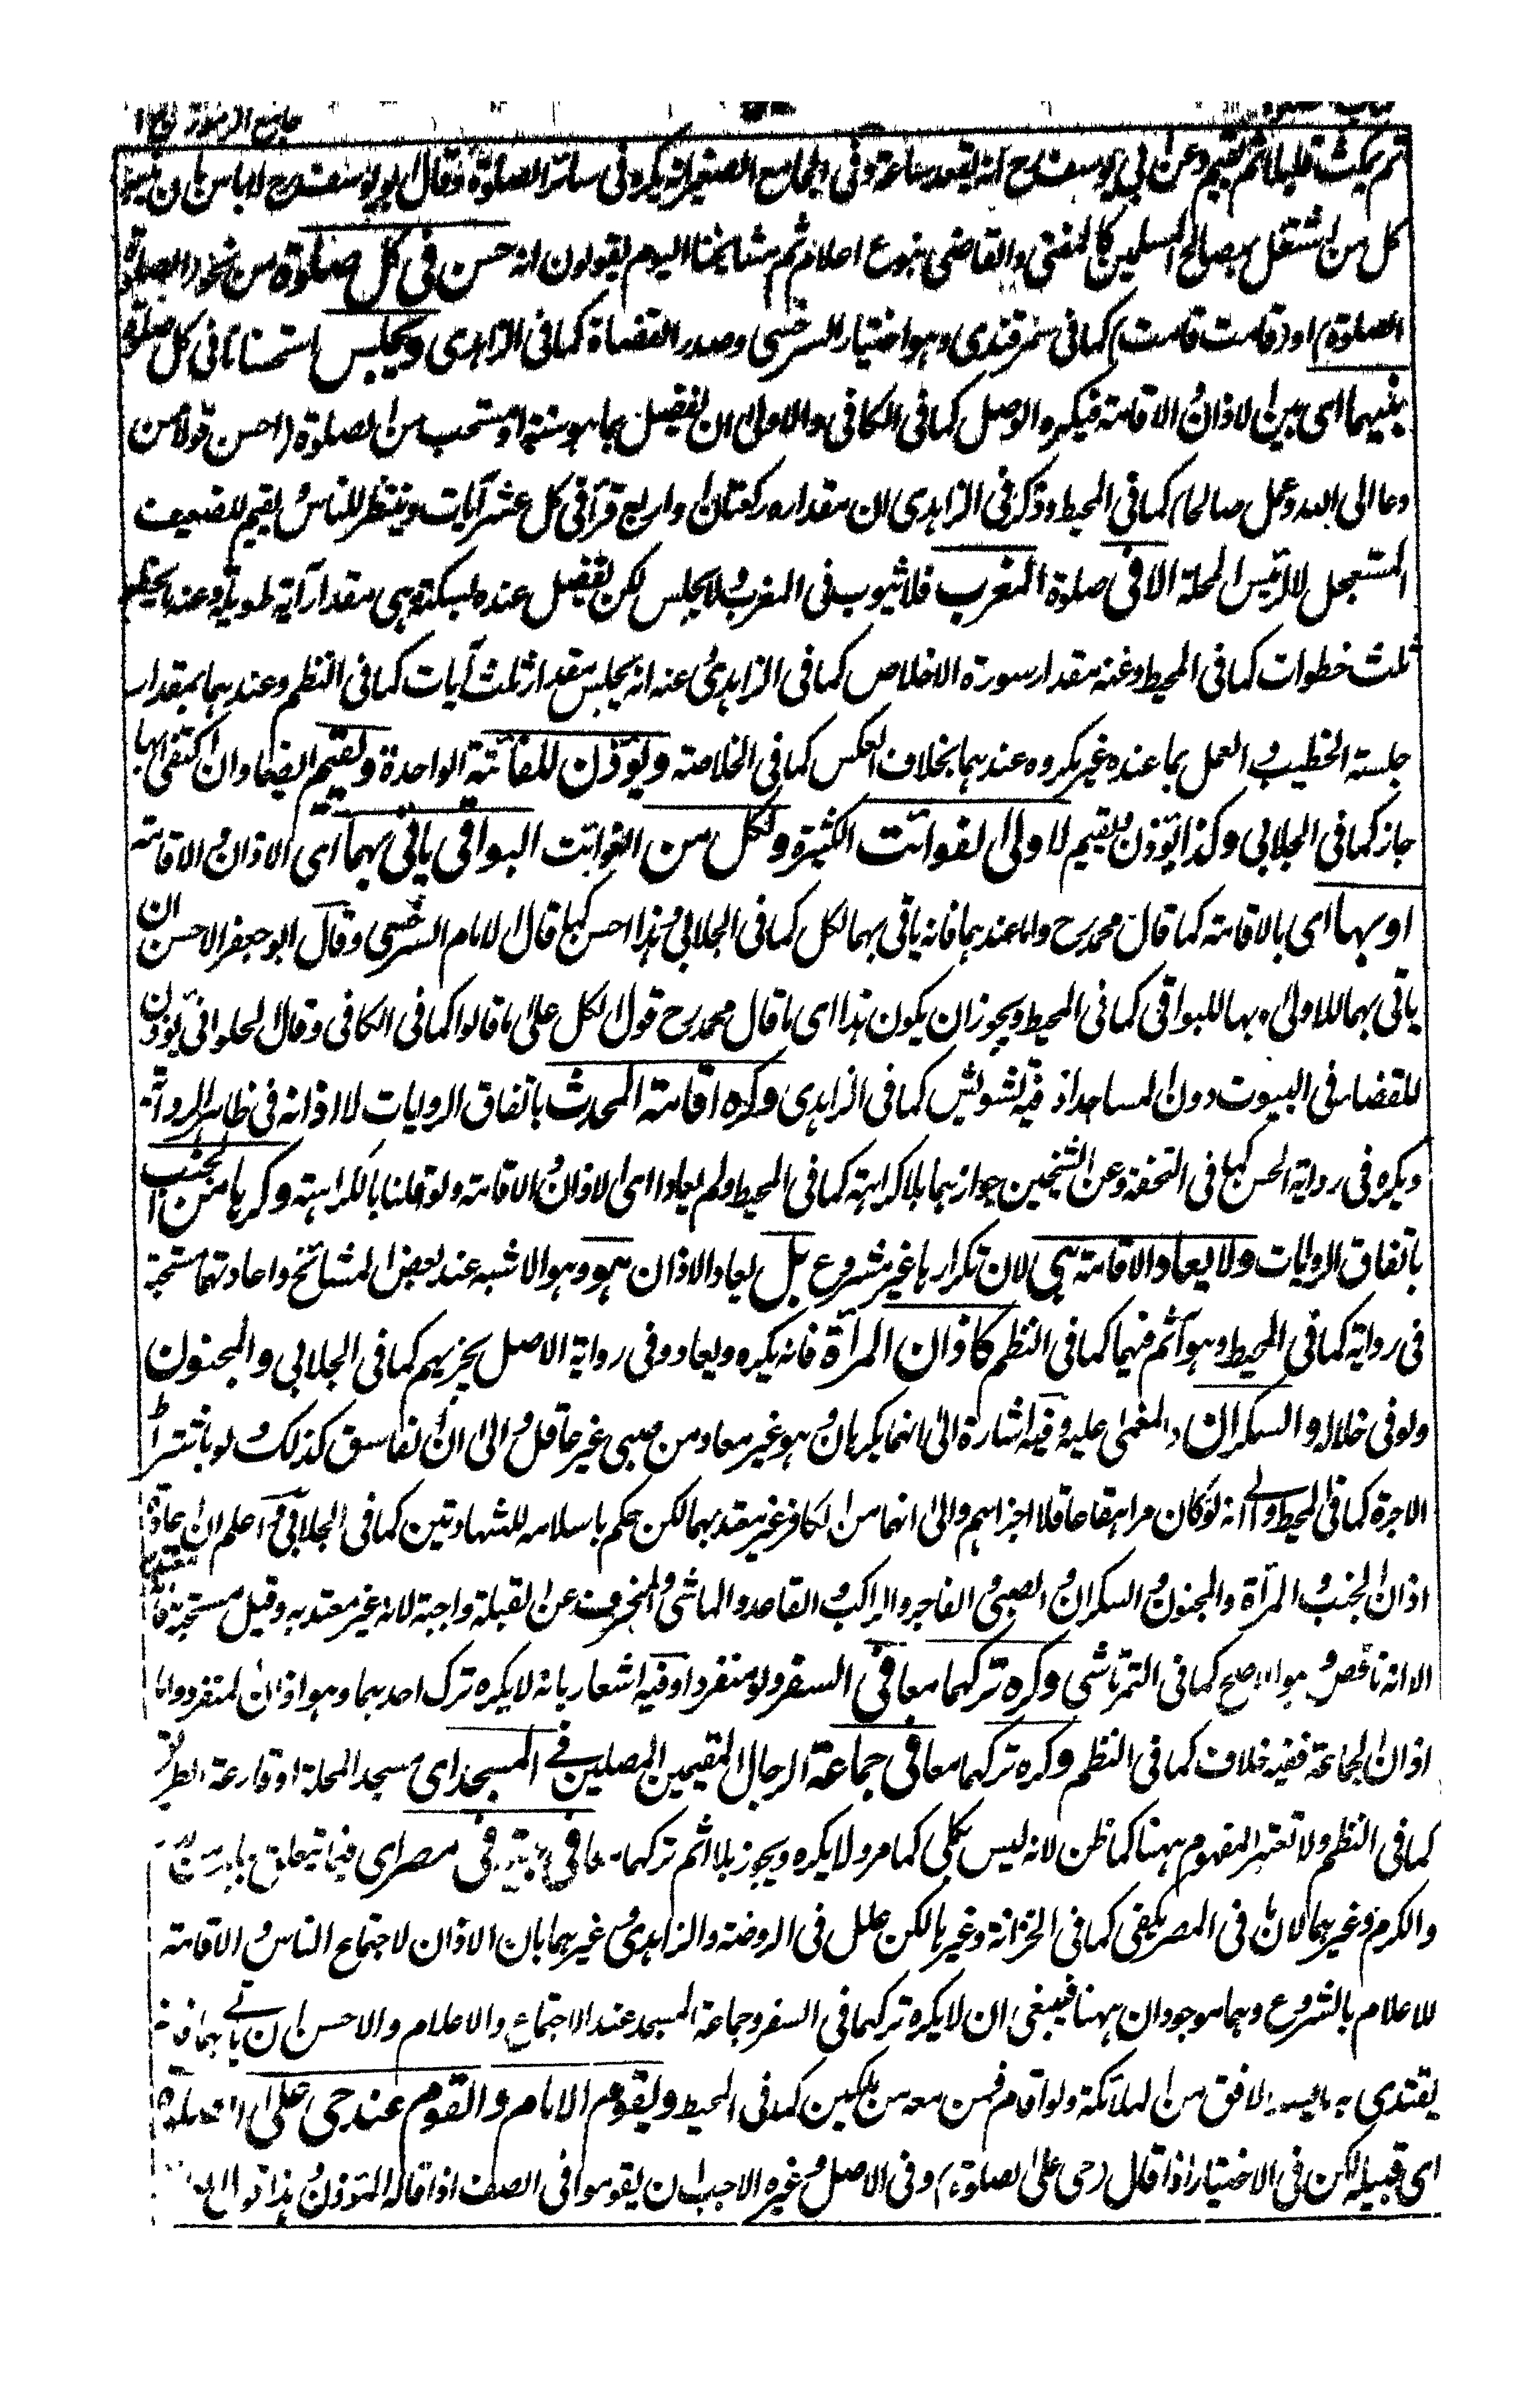 جامع الرموز ج ١
ثم يمكث قليلا ثم يقيم وعن ابي يوسف رح انه يقعد ساعة وفي الجامع الصغير انه يكره في سائر الصلوة وقال ابو يوسف رح لا باس بان
كل من اشتغل بمصالح المسلمين كالمفتي والقاضي بنوع اعلام ثم مشايخنا اليوم يقولون انه حسن في كل صلوة من نحو (الصلوة
الصلوة) او (قامت قامت) كما في سمرقندي وهو اختيار السرخسي وصدر القضاة كما في الزاهدي ويجلس استحسانا في كل صلوة
بينهما اى بين الاذان والاقامة فيكره الوصل كما في الكافي والاولى ان يفصل بما هو سنة او مستحب من الصلوة (احسن قولا ممن
دعا الى الله وعمل صالحا) كما في المحيط وذكر في الزاهدى ان مقداره ركعتان او اربع قرأ في كل عشر آيات وينتظر للناس ويقيم للضعيف
المستعجل لا لرئيس المحلة الا في صلوة المغرب فلا يثوب في المغرب ولا يجلس لكن يفصل عنده بسكتة وهى مقدار آية طويلة وعنه
ثلث خطوات كما في المحيط وعنه مقدار سورة الاخلاص كما في الزاهدى وعنه انه يجلس مقدار ثلث آيات كما في النظم وعندهما بمقدار
جلسة الخطيب والعمل بما عنده غير مكروه عندهما بخلاف العكس كما في الخلاصة ويؤذن للفائتة الواحدة ويقيم ايضا وان اكتفى بها
جاز كما في الجلابي وكذا يؤذن ويقيم لاولى الفوائت الكثيرة ولكل من الفوائت البواقي ياتي بهما اى الاذان والاقامة
او بها اى بالاقامة كما قال محمد رح واما عندهما فانه ياتي بهما لكل كما في الجلابي وهذا احسن كما قال الامام السرخسي وقال ابو جعفر الاحسن ان
ياتي بهما للاولى وبها للبواقي كما في المحيط ويجوز ان يكون هذا اى ما قال محمد رح قول الكل على ما قالوا كما في الكافي وقال الحلواني يؤذن
للقضاء في البيوت دون المساجد اذ فيه تشويش كما في الزاهدى وكره اقامة المحدث باتفاق الروايات لا اذانه في ظاهر الرواية
ويكره في رواية الحسن كما في التحفة وعن الشيخين جوازهما بلا كراهة كما في المحيط ولم يعادا اى الاذان والاقامة ولو قلنا بالكراهة وكرها من الجنب
باتفاق الروايات ولا يعاد الاقامة هى لان تكرارها غير مشروع بل يعاد الاذان هو وهو الاشبه عند بعض المشائخ واعادتهما مستحبة
في رواية كما في المحيط وهو آثم فيهما كما في النظم كاذان المرأة فانه يكره ويعاد وفي رواية الاصل يجزيهم كما في الجلابي والمجنون
ولو في خلاله والسكران والمغمى عليه وفيه اشارة الى انهما يكرهان وهو غير معاد من صبى غير عاقل والى ان الفاسق كذلك لو باشتراط
الاجرة كما في المحيط والى انه لو كان مراهقا عاقلا اجزاهم والى انهما من الكافر غير معتد بهما لكن حكم باسلامه للشهادتين كما في الجلابي واعلم ان اعادة
اذان الجنب والمرأة والمجنون والسكران والصبي والفاجر والراكب والقاعد والماشي والمنحرف عن القبلة واجبة لانه غير معتد به وقيل مستحبة فانه معتد به
الا انه ناقص وهو الاصح كما في التمرتاشي وكره تركهما معا في السفر ولو منفردا وفيه اشعار بانه لا يكره ترك احدهما وهو اذان المنفرد واما
اذان الجماعة ففيه خلاف كما في النظم وكره تركهما معا في جماعة الرجال المقيمين المصلين في المسجد اى مسجد المحلة او قارعة الطريق
كما في النظم ولا تعتبر المفهوم ههنا كما ظن لانه ليس بكلى كما مر ولا يكره ويجوز بلا اثم تركهما معا في بيته في مصر اى فيما يتعلق به
والكرم وغيرهما لان ما في المصر يكفى كما في الخزانة وغيرها لكن علل في الروضة والزاهدى وغيرهما بان الاذان لاجتماع الناس والاقامة
للاعلام بالشروع وهما موجودان ههنا فينبغى ان لا يكره تركهما في السفر وجماعة المسجد عند الاجتماع والاعلام والاحسن ان ياتي بهما فانه
يقتدى به ما يسد الافق من الملائكة ولو اقام فمن معه من ملكين كما في المحيط ويقوم الامام والقوم عند حى على الصلوة
اى قبيله لكن في الاختيار اذا قال (حى على الصلوة) وفي الاصل وغيره الاحب ان يقوموا في الصف اذا قاله المؤذن وهذا قول